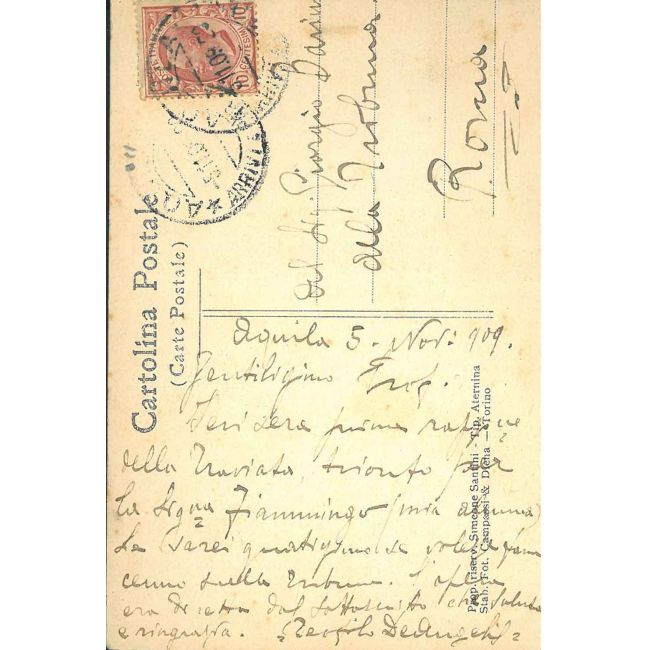 Cartolina Postale
(Carte Postale)
ARRIVI
al Sig. Giorgio
alla Tribuna
Roma
Aquila 5. Nov: 909.
Gentilissimo Prof.
Ieri sera prima rappne
della Traviata, trionfo per
la Signa Fiammingo (mia alunna)
Le sarei gratissimo se volesse farne
cenno sulla Tribuna. L'opera
era diretta dal sottoscritto che saluta
e ringrazia. De Angelis
Prop. riserv. Simeone Santini - Tip. Aternina
Stab. Fot. Campassi & Diena - Torino